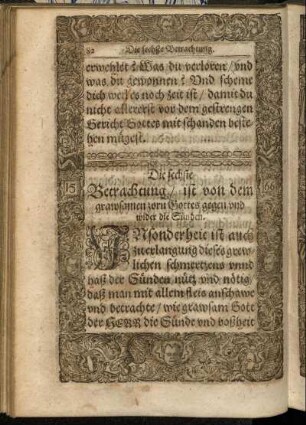 82 Die sechste Betrachtung.
erwehlet? Was du verloren/ vnd
was du gewonnen? Vnd scheme
dich weil es noch zeit ist/ damit du
nicht allererst vor dem gestrengen
Gericht Gottes mit schanden beste-
hen müßest.
Die sechste
15 Betrachtung/ ist von dem 66
grawsamen zorn Gottes gegen vnd
wider die Sünden.
INsonderheit ist auch
zu erlangung dieses grew-
lichen schmertzens vnnd
haß der Sünden nütz vnd nötig/
daß man mit allem fleis anschawe
vnd betrachte/ wie grawsam Gott
der HERR die Sünde vnd boßheit